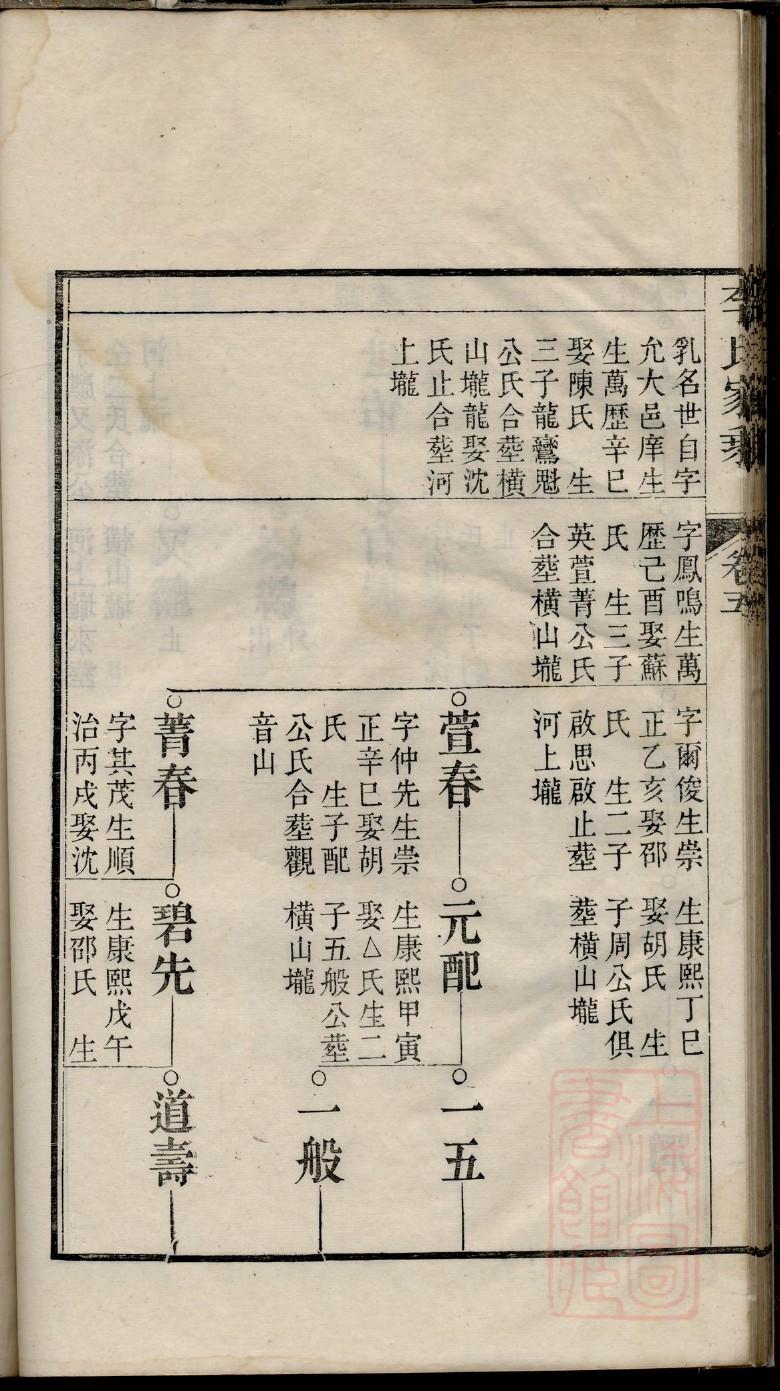 李氏家乘
卷五
乳名世自字
允大邑庠生
生萬歷辛巳
娶陳氏　生
三子龍鸞魁
公氏合塟橫
山壠龍娶沈
氏止合塟河
上壠
字鳳鳴生萬
歷己酉娶蘇
氏　生三子
英萱菁公氏
合塟橫山壠
字爾俊生崇
正乙亥娶邵
氏　生二子
啟思啟止塟
河上壠
生康熙丁巳
娶胡氏　生
子周公氏俱
塟橫山壠
萱春
字仲先生崇
正辛巳娶胡
氏　生子配
公氏合塟觀
音山
元配
生康熙甲寅
娶△氏生二
子五般公塟
橫山壠
一五
一般
菁春
字其茂生順
治丙戌娶沈
碧先
生康熙戊午
娶邵氏　生
道壽
上海圖
書館藏